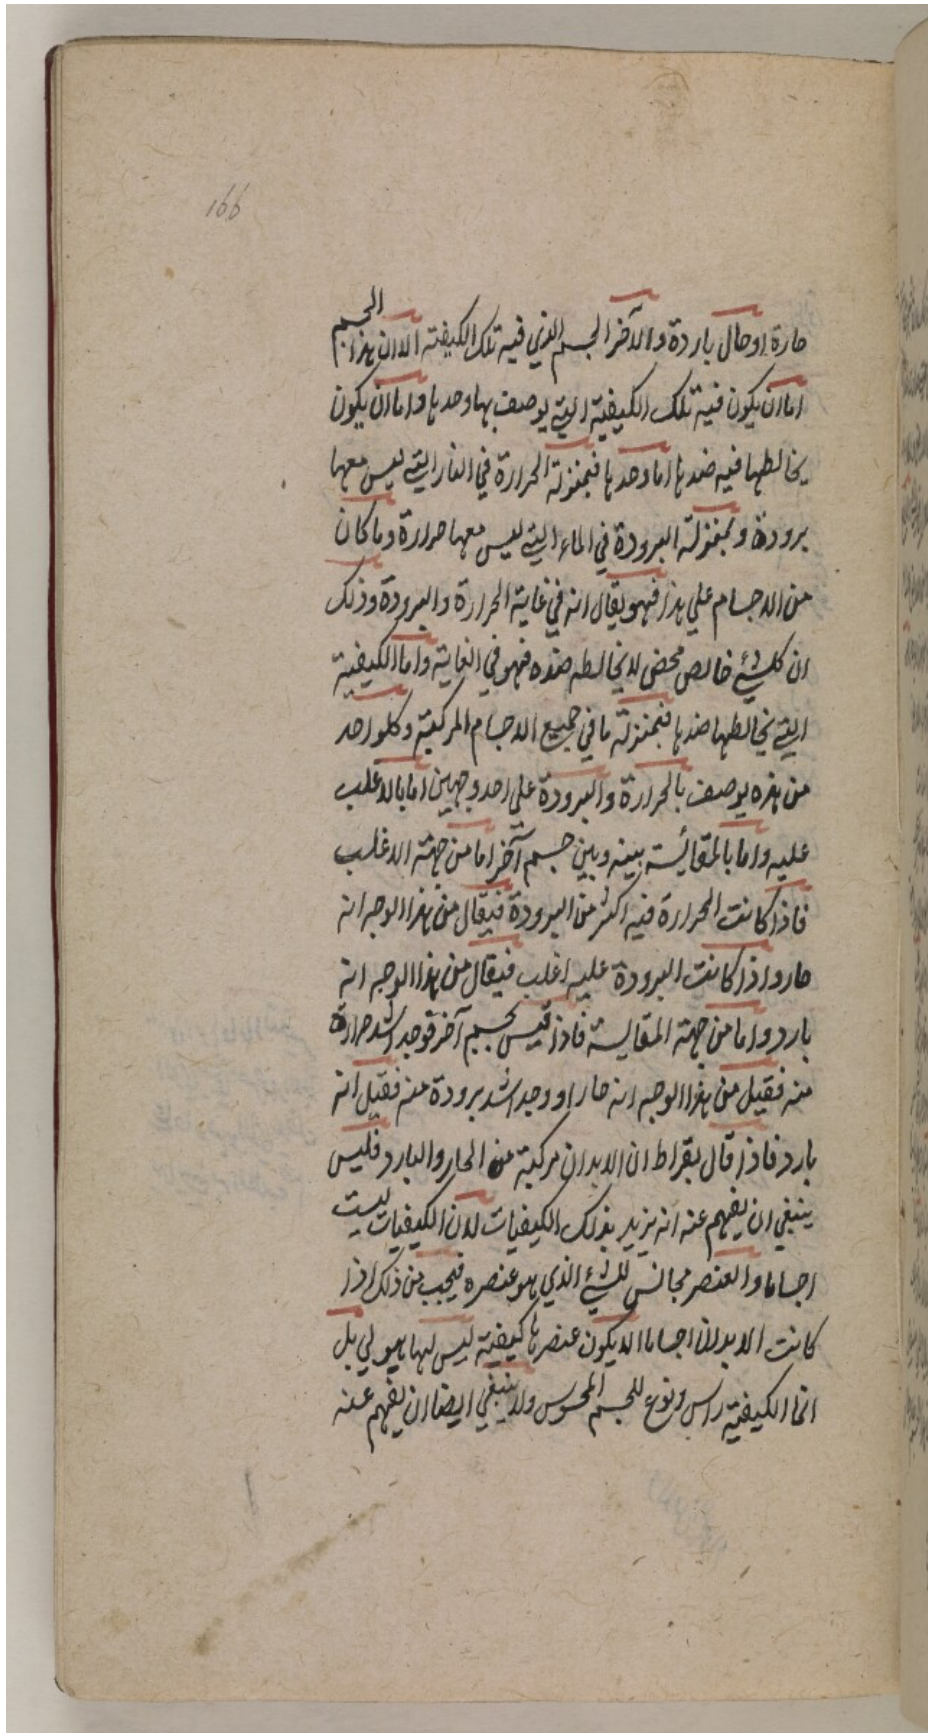 166
حارة او حال باردة والآخر الجسم الذي فيه تلك الكيفية الا ان هذا الجسم
اما ان يكون فيه تلك الكيفية التي يوصف بها وحدها واما ان يكون
يخالطها فيه ضدها اما وحدها فبمنزلة الحرارة في النار التي ليس معها
برودة وبمنزلة البرودة في الماء التي ليس معها حرارة وما كان
من الاجسام على هذا فهو يقال انه في غاية الحرارة والبرودة وذلك
ان كل شئ خالص محض لا يخالطه ضده فهو في الغاية واما الكيفية
التي يخالطها ضدها فبمنزلة ما في جميع الاجسام المركبة وكلواحد
من هذه يوصف بالحرارة والبرودة على احد وجهين اما بالاغلب
عليه واما بالمقائسة بينه وبين جسم آخر اما من جهة الاغلب
فاذا كانت الحرارة فيه اكثر من البرودة فيقال من هذا الوجه انه
حار واذا كانت البرودة عليه اغلب فيقال من هذا الوجه انه
بارد واما من جهة المقايسة فاذا قيس بجسم آخر فوجد اشد حرارة
منه فقيل من هذا الوجه انه حار او وجد اشد برودة منه فقيل انه
بارد فاذا قال بقراط ان الابدان مركبة من الحار والبارد فليس
ينبغي ان يفهم عنه انه يريد بذلك الكيفيات لان الكيفيات ليست
اجساما والعنصر مجانس للشئ الذي هو عنصره فيجب من ذلك اذا
كانت الابدان اجساما الا يكون عنصرها كيفية ليس لها هيولي بل
انما الكيفية راس ونوع للجسم المحسوس ولا ينبغي ايضا ان يفهم عنه